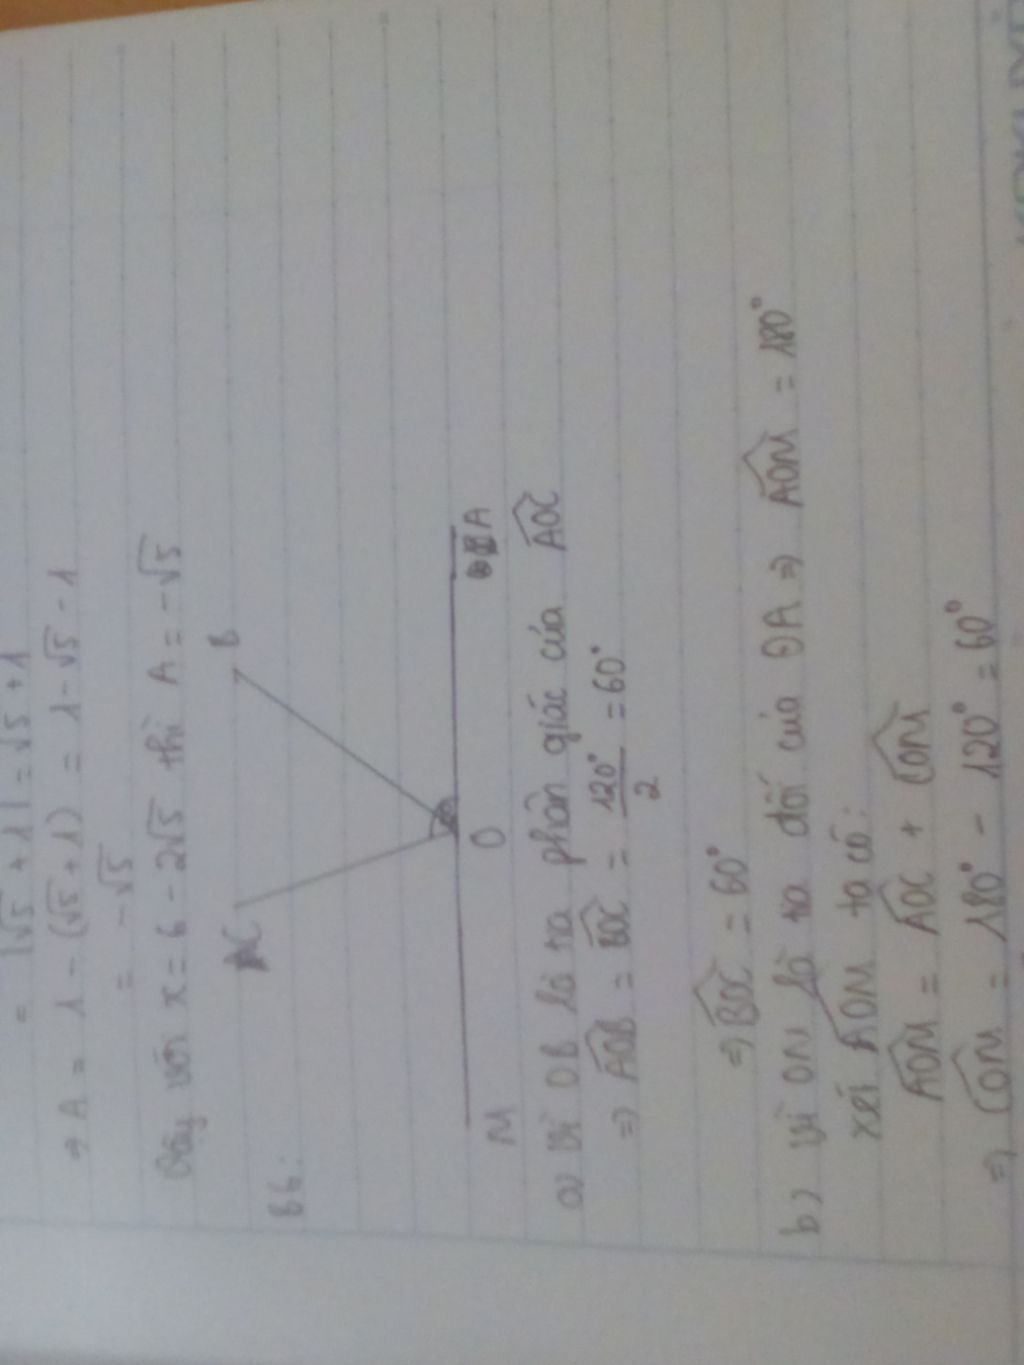 = |√5 + 1| = √5 + 1
⇒ A = 1 - (√5 + 1) = 1 - √5 - 1
= -√5
Vậy với x = 6 - 2√5 thì A = -√5
B6:
C B
M O A
a) Vì OB là tia phân giác của AOC
⇒ AOB = BOC = 120°/2 = 60°
⇒ BOC = 60°
b) Vì OM là tia đối của OA ⇒ AOM = 180°
xét AOM ta có:
AOM = AOC + COM
⇒ COM = 180° - 120° = 60°